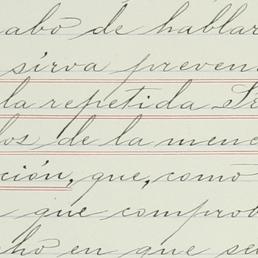 abo de hablar
sirva preven
la repetida Se
los de la menc
ción, que, como
que comprob
cho en que se